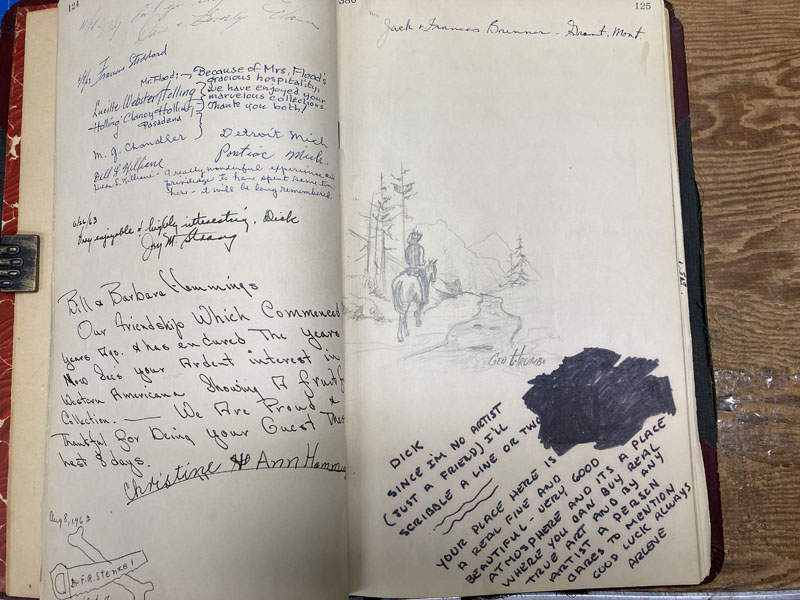 124
Francis Stoddard
Mr. Flood: - Because of Mrs. Flood's
gracious hospitality,
Lucille Webster Holling
we have enjoyed your
marvelous collections.
Holling Clancy Holling
Thank you both!
Pasadena
M. G. Chandler
Detroit Mich
Pontiac Mich.
A really wonderful experience and
privilege to have spent some time
here - it will be long remembered.
6/26/63
Very enjoyable & highly interesting, Dick
Jay M.
Bill & Barbara Hemmings
Our friendship Which Commenced
years Ago. & has endured The years
Now sees your Ardent interest in
Western Americana Showing A fruitf
Collection. — We Are Proud &
Thankful for being your Guest These
last 8 days.
Christine Ann Hemmi
Aug 8, 1963
125
Jack & Frances Brenner - Grant, Mont
DICK
SINCE I'M NO ARTIST
(JUST A FRIEND) I'LL
SCRIBBLE A LINE OR TWO
YOUR PLACE HERE IS
A REAL FINE AND
BEAUTIFUL - VERY GOOD
ATMOSPHERE AND ITS A PLACE
WHERE YOU CAN BUY REAL
TRUE ART AND BY ANY
ARTIST A PERSON
DARES TO MENTION
GOOD LUCK ALWAYS
ARLENE